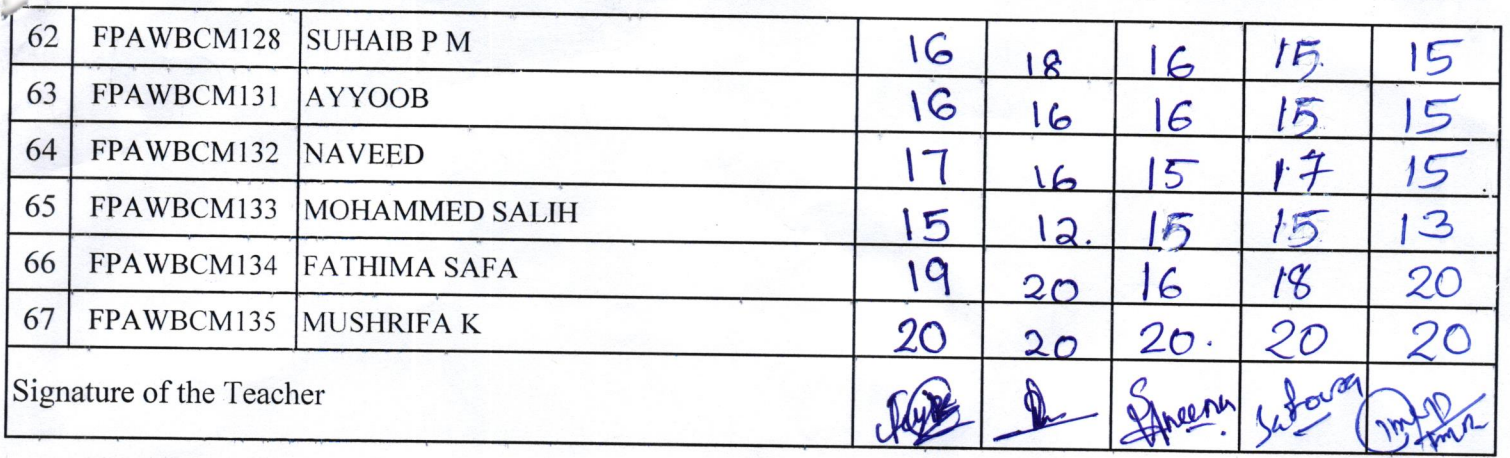 62 FPAWBCM128 SUHAIB P M 16 18 16 15 15
63 FPAWBCM131 AYYOOB 16 16 16 15 15
64 FPAWBCM132 NAVEED 17 16 15 17 15
65 FPAWBCM133 MOHAMMED SALIH 15 12. 15 15 13
66 FPAWBCM134 FATHIMA SAFA 19 20 16 18 20
67 FPAWBCM135 MUSHRIFA K 20 20 20. 20 20
Signature of the Teacher